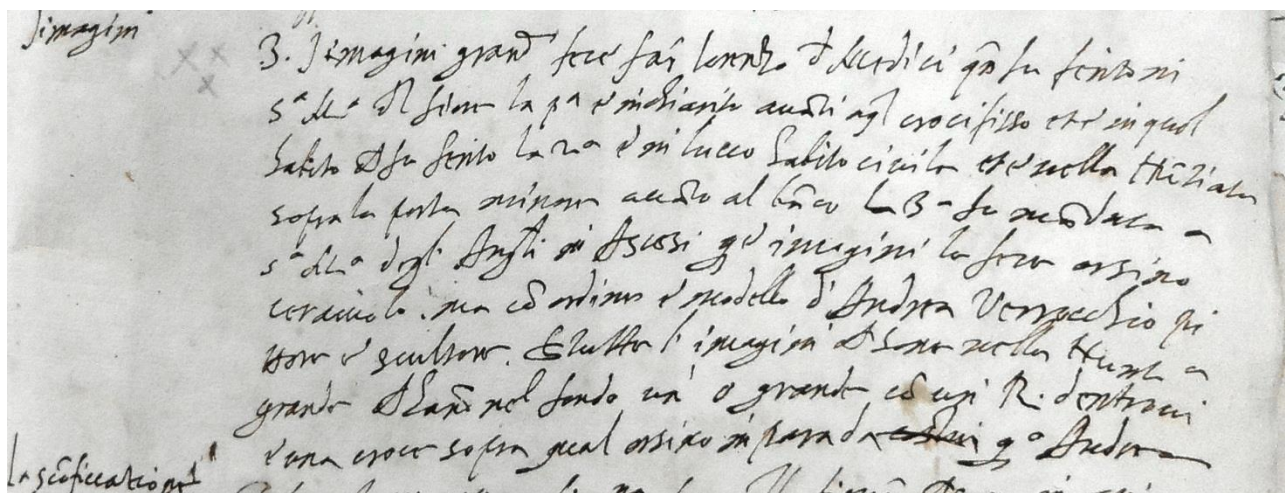 Jmagini
3. Jmagini grand fece far lorenzo d Medici qn fu ferito ni
s.a M.a dl fiore la p.a è in chiarito auāti agl crocifisso et è in quel
habito ch fu ferito la 2.a è in lucco habito civile et è nella Nūtiata
sopra la porta minore acāto al bāco la 3.a fu mādata a
s.a M.a degli Angli in Ascesi q.e imagini le fece orsino
ceraiuolo ma cō ordine e modello d'Andrea Verrocchio pi
ttore e scultore. Et tutte l'imagini ch sono nella Nunt.a
grande ch hāno nel fondo un' o grande cō un R. dentroui
e una croce sopra qual orsino inparo da q.o Andrea